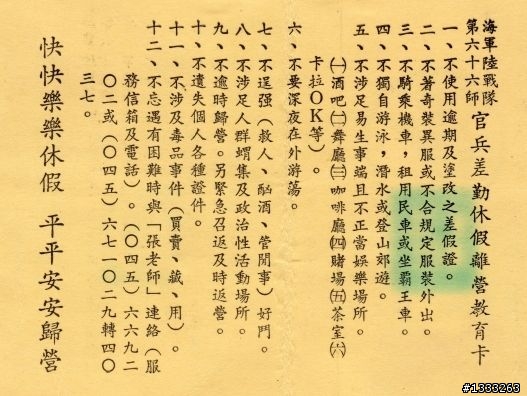 海軍陸戰隊
第六十六師
官兵差勤休假離營教育卡
一、不使用逾期及塗改之差假證。
二、不著奇裝異服或不合規定服裝外出。
三、不騎乘機車，租用民車或坐霸王車。
四、不獨自游泳，潛水或登山郊遊。
五、不涉足易生事端且不正當娛樂場所。
㈠酒吧㈡舞廳㈢咖啡廳㈣賭場㈤茶室㈥
卡拉OK等）。
六、不要深夜在外游蕩。
七、不逞強（救人、酗酒、管閒事）好鬥。
八、不涉足人群蝟集及政治性活動場所。
九、不逾時歸營。另緊急召返及時返營。
十、不遺失個人各種證件。
十一、不涉及毒品事件（買賣、藏、用）。
十二、不忘遇有困難時與「張老師」連絡（服
務信箱及電話）。（〇四五）六六九二
〇二或（〇四五）六七一〇二九轉四〇
三七。
快快樂樂休假　平平安安歸營
#1333263